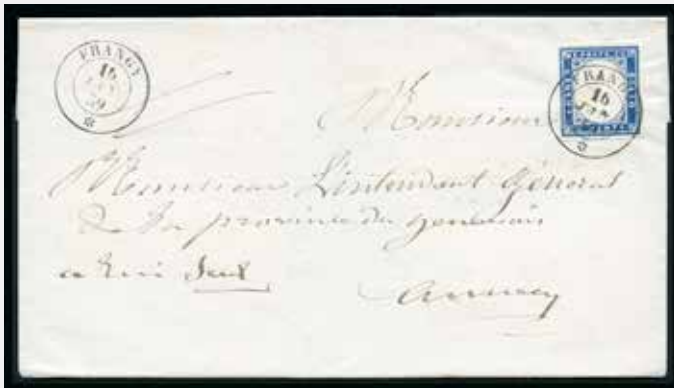 FRANGY
16
59
FRANGY
16
Monsieur
Monsieur L'intendant Général
de la province du genevois
a lui Seul
Annecy